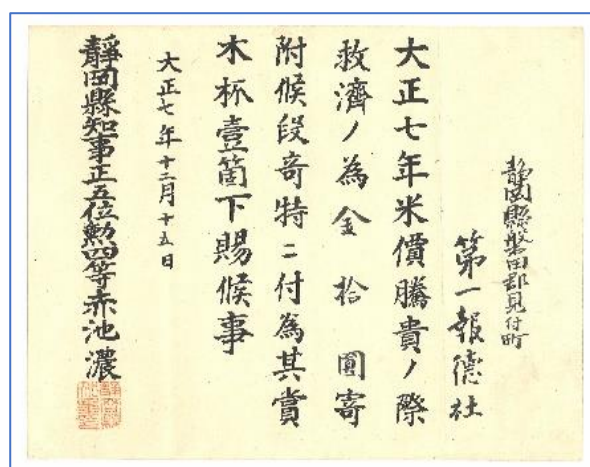 靜岡縣磐田郡見付町
第一報德社
大正七年米價騰貴ノ際
救濟ノ為金拾圓寄
附候段奇特ニ付為其賞
木杯壹箇下賜候事
大正七年十二月十五日
靜岡縣知事正五位勲四等赤池濃